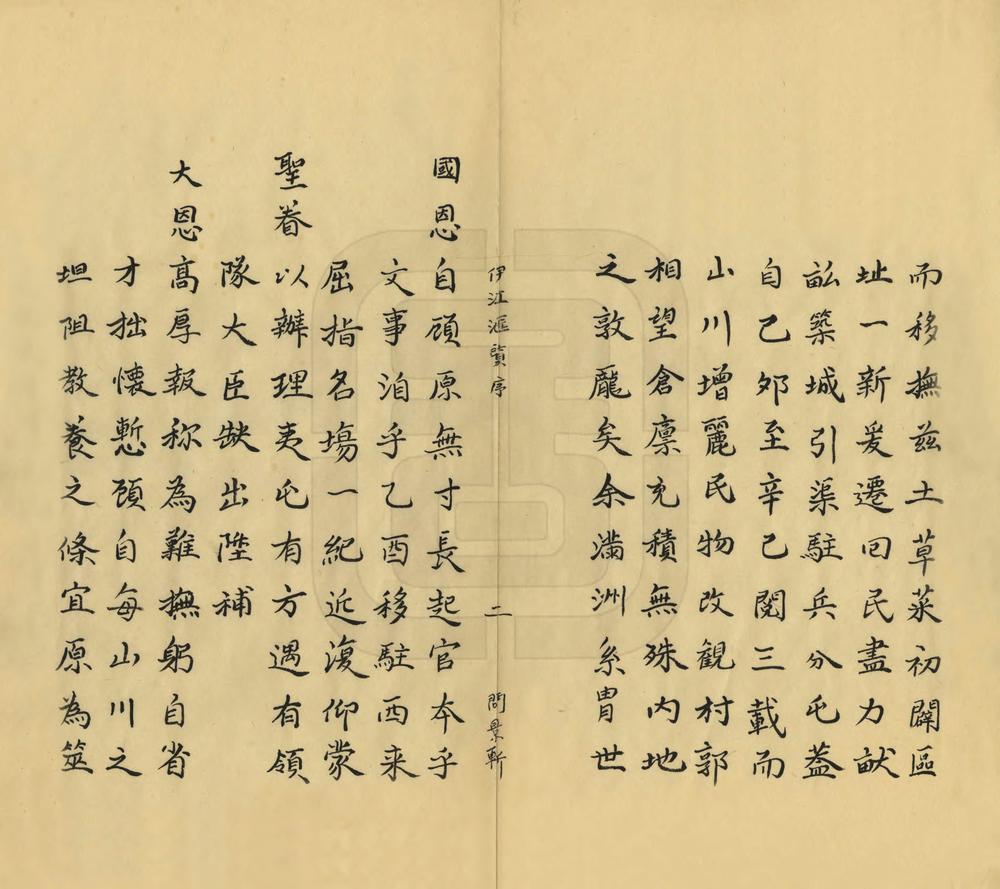 而移撫茲土草萊初闢區
址一新爰遷回民盡力畎
畝築城引渠駐兵分屯蓋
自己夘至辛己閱三載而
山川增麗民物改観村郭
相望倉廩充積無殊内地
之敦龎矣余滿洲系胄世
伊江滙覽序
二
問景軒
國恩自顧原無寸長起官夲乎
文事洎乎乙酉移駐西来
屈指名塲一紀近復仰蒙
聖眷以辦理夷屯有方遇有領
隊大臣缺出陞補
大恩高厚報称為難撫躬自省
才拙懷慙顧自每山川之
坦阻教養之條宜原為筮